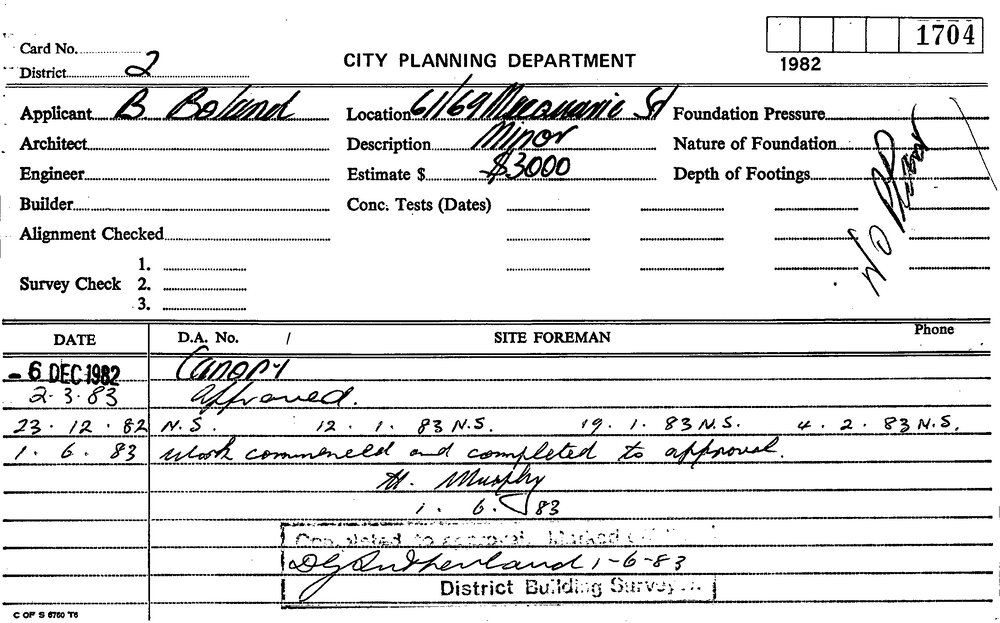 Card No.
1704
District 2
CITY PLANNING DEPARTMENT
1982
Applicant B Boland Location 61/69 St Foundation Pressure
Architect Description Minor Nature of Foundation
Engineer Estimate $ $3000 Depth of Footings
Builder Conc. Tests (Dates)
No
Alignment Checked
1.
Survey Check 2.
3.
DATE D.A. No. / SITE FOREMAN Phone
- 6 DEC 1982 Canopy
2.3.83 Approved.
23.12.82 N.S. 12.1.83 N.S. 19.1.83 N.S. 4.2.83 N.S.
1.6.83 Work commenced and completed to approval.
H. Murphy
1.6.83
Completed to approval. Marked
DG Sutherland 1-6-83
District Building Surveyor
C OF S 6750 T6